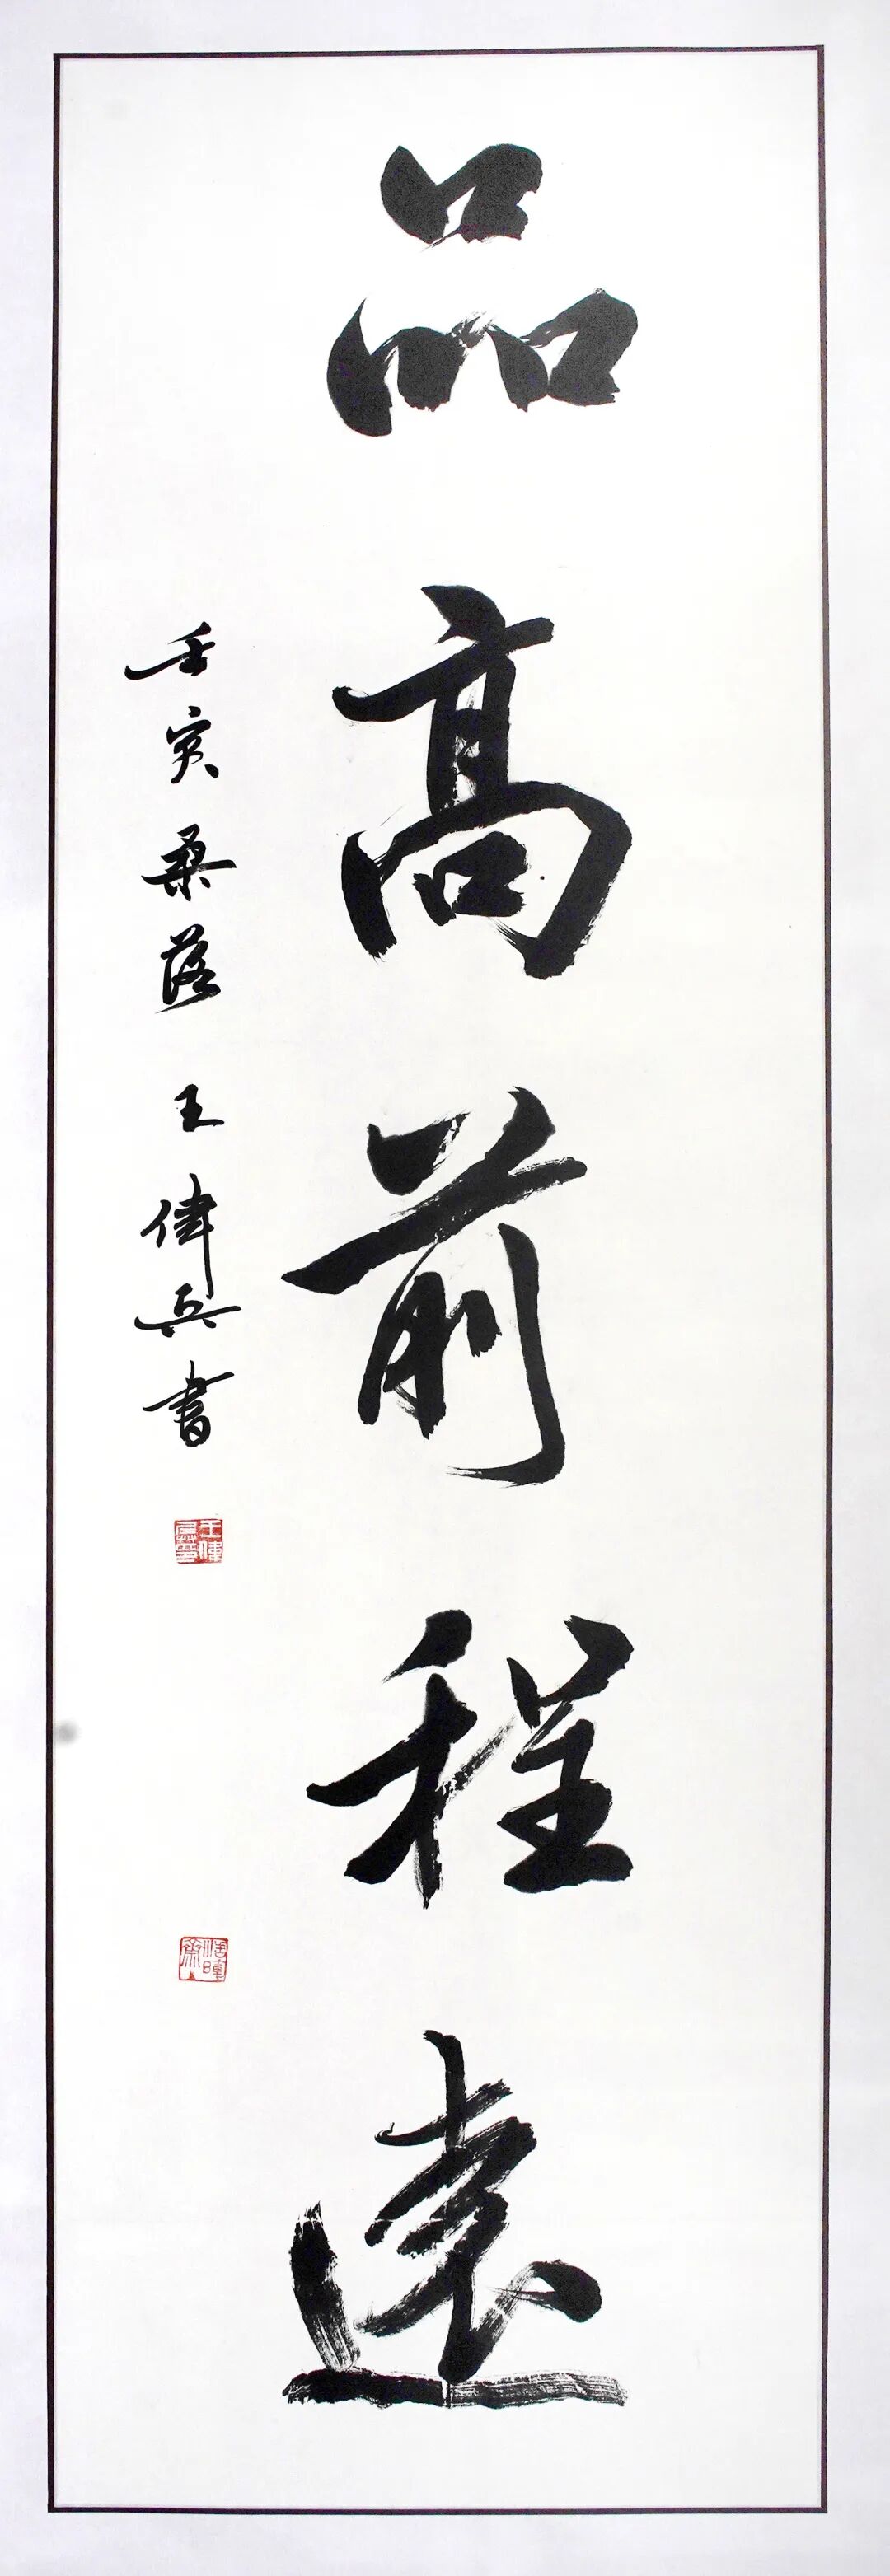 品高前程遠
壬寅桑落 王偉兵書